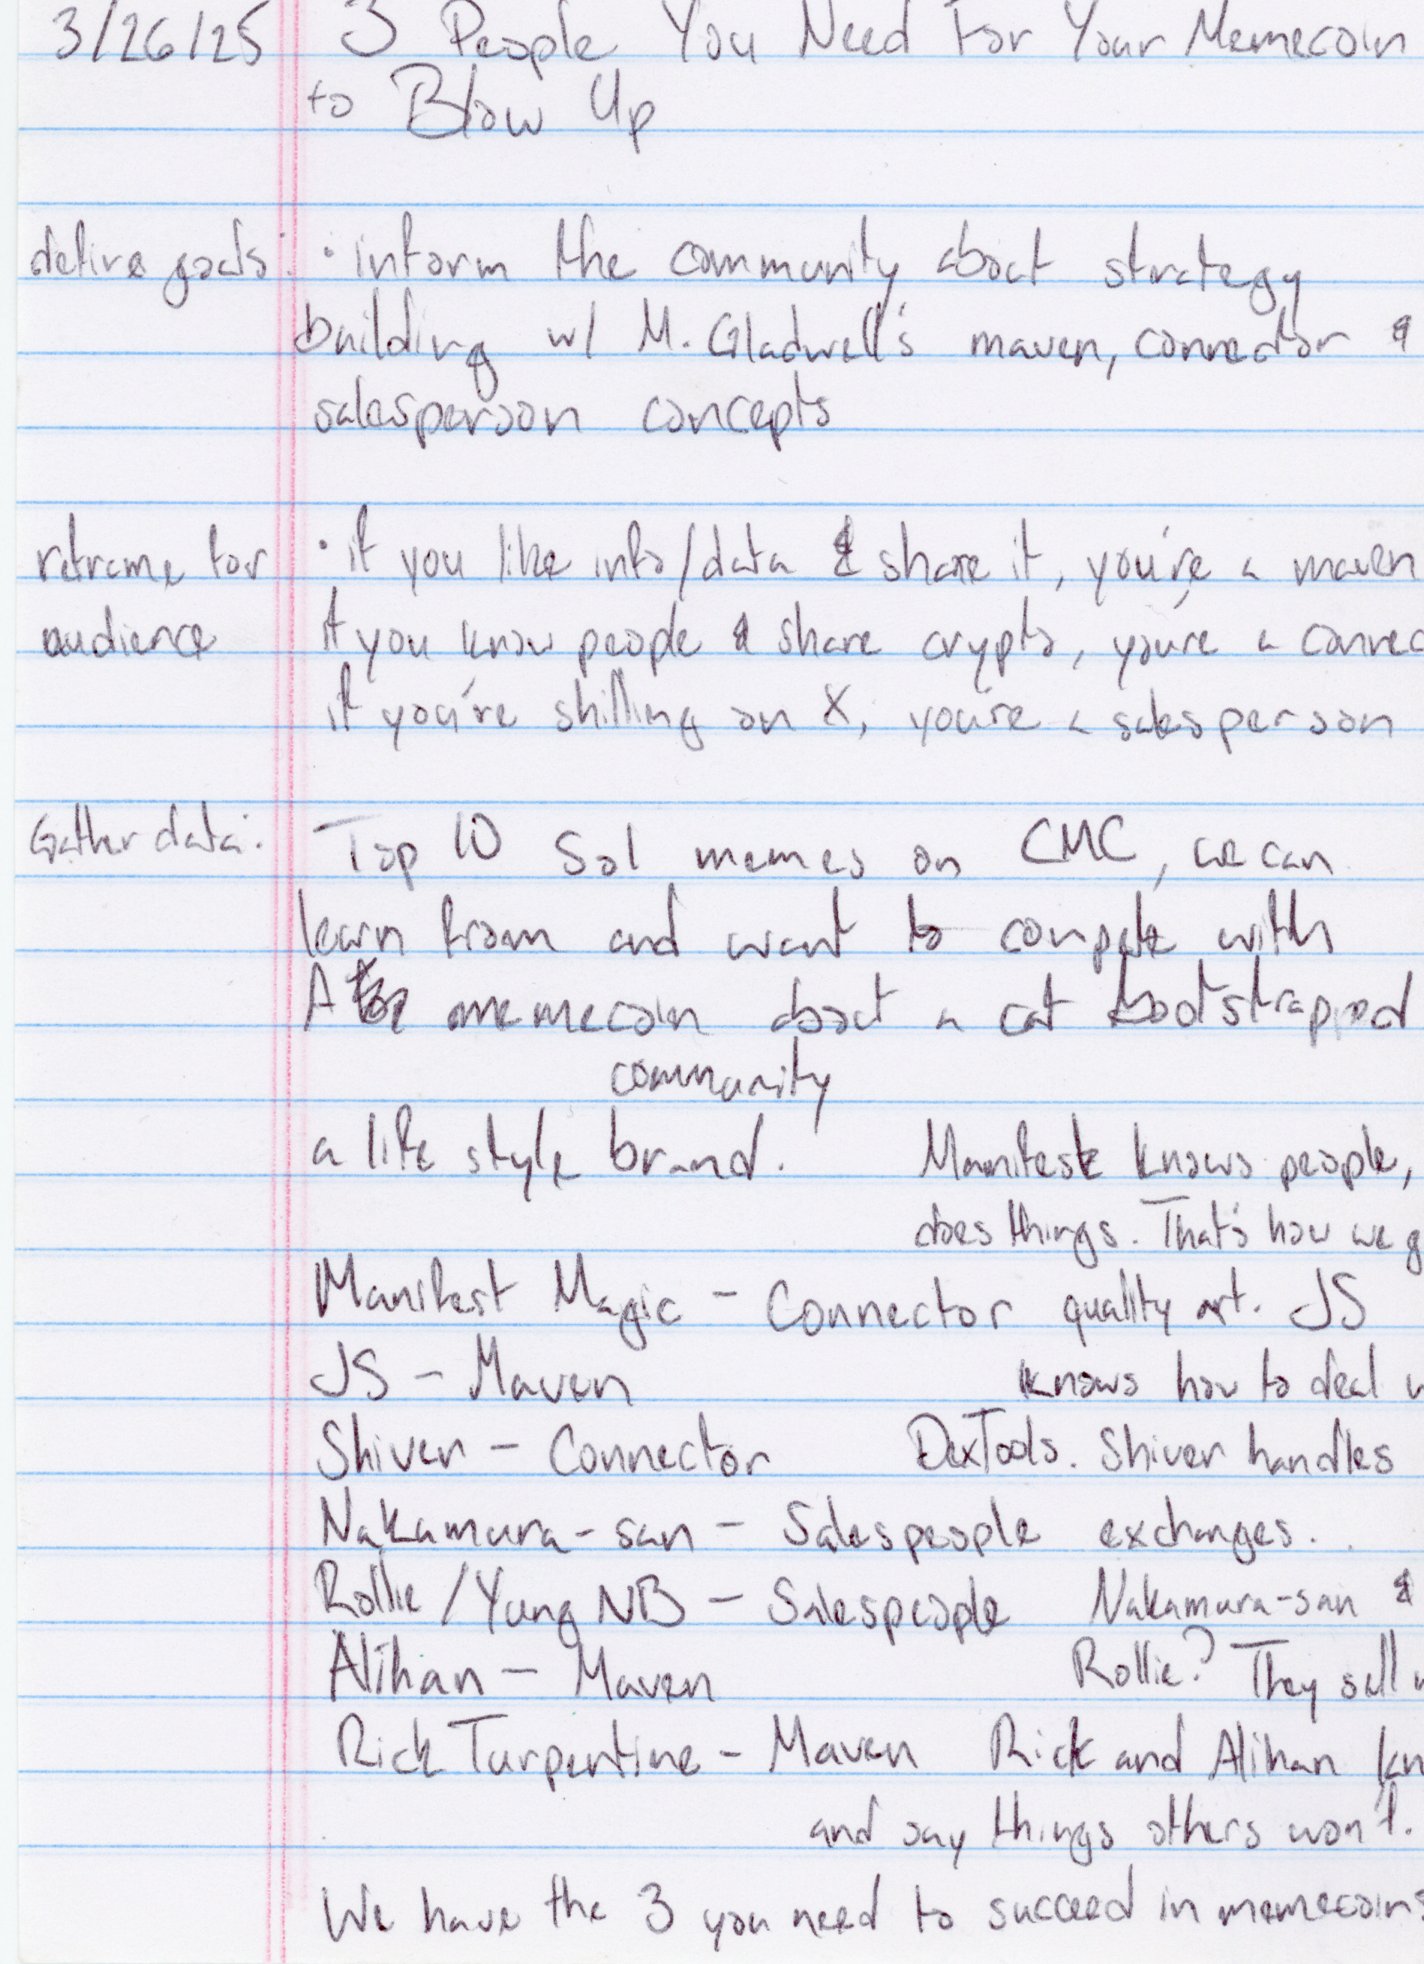 3/26/25 3 People You Need For Your Memecoin
to Blow Up
define goals: · inform the community about strategy
building w/ M. Gladwell's maven, connector &
salesperson concepts
reframe for · if you like info/data & share it, you're a maven
audience if you know people & share crypto, you're a connec
if you're shilling on X, you're a salesperson
Gather data: Top 10 Sol memes on CMC, we can
learn from and want to compete with
A memecoin about a cat bootstrapped
community
a life style brand. Manifest knows people,
does things. That's how we g
Manifest Magic - Connector quality art. JS
JS - Maven knows how to deal w
Shiver - Connector DexTools. Shiver handles
Nakamura-san - Salespeople exchanges.
Rollie / Yung NB - Salespeople Nakamura-san &
Alihan - Maven Rollie? They sell
Rick Turpentine - Maven Rick and Alihan kn
and say things others won't.
We have the 3 you need to succeed in memecoins